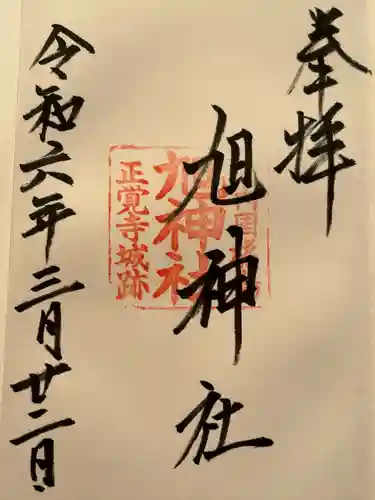 奉拝
旭神社
旭神社
正覚寺城跡
令和六年三月廿二日